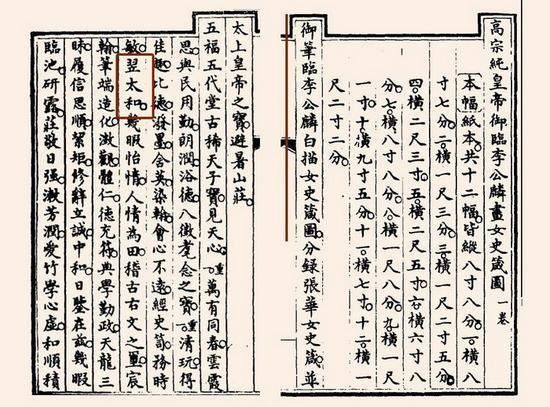 高宗純皇帝御臨李公麟畫女史箴圖一卷
本幅紙本共十二幅皆縱八寸八分一橫八
寸七分二橫一尺三分三橫一尺二寸五分
四橫二尺三寸五橫二尺五分六橫六寸八
分七橫八寸八分八橫一尺八分九橫一尺
一寸十橫九寸五分十一橫七寸十二橫一
尺二寸二分
御筆臨李公麟白描女史箴圖分錄張華女史箴並
太上皇帝之寶避暑山莊
五福五代堂古稀天子寶見天心重萬有同春雲霞
思與民用勤朗潤浴德八徵耄念之寶重清玩得
佳趣比德潑墨含英染翰會心不遠經史務時
敏翌太和幾暇怡情人情為田稽古右文之璽宸
翰筆端造化澂觀體仁德充符典學勤政天龍三
昧履信思順絜矩修辭立誠中和日鑒在茲幾暇
臨池研露莊敬日强漱芳潤愛竹學心虛和順積